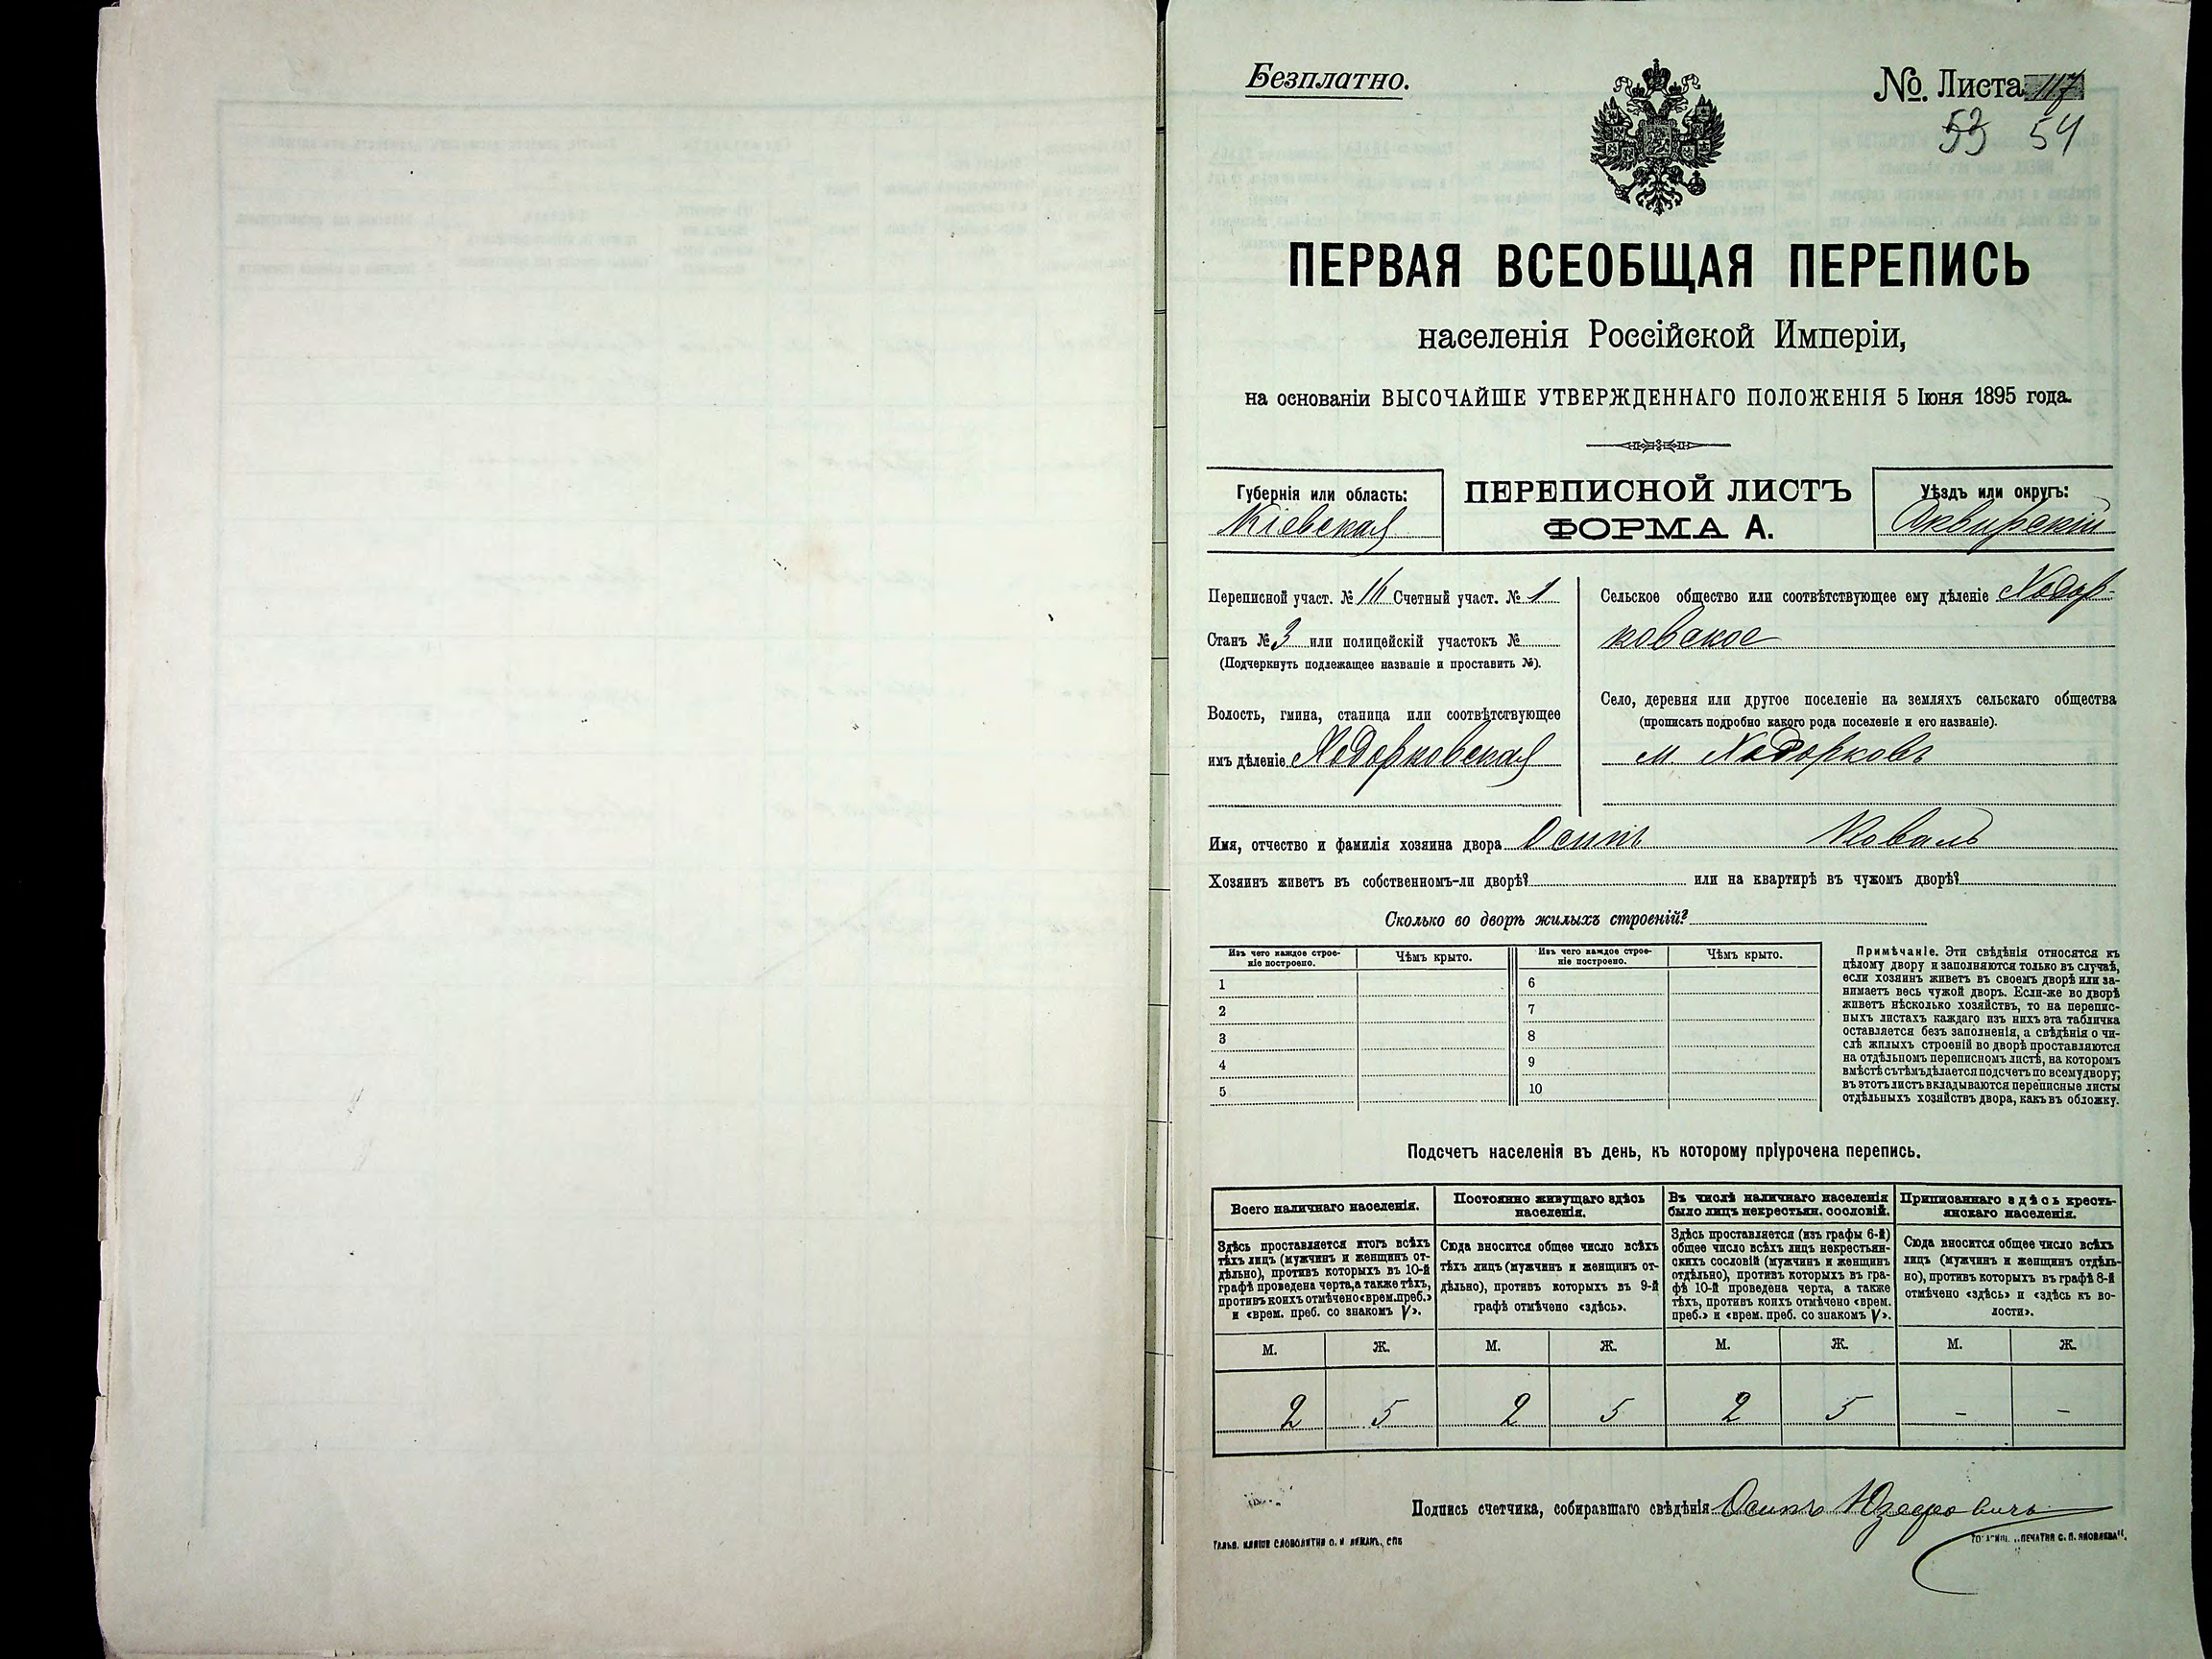 Безплатно.
№. Листа 117
53 54
ПЕРВАЯ ВСЕОБЩАЯ ПЕРЕПИСЬ
населенія Россійской Имперіи,
на основаніи ВЫСОЧАЙШЕ УТВЕРЖДЕННАГО ПОЛОЖЕНІЯ 5 Іюня 1895 года.
Губернія или область:
Кіевская
ПЕРЕПИСНОЙ ЛИСТЪ
ФОРМА А.
Уѣздъ или округъ:
Сквирскій
Переписной участ. № 16 Счетный участ. № 1
Станъ № 3 или полицейскій участокъ №
(Подчеркнуть подлежащее названіе и проставить №).
Волость, гмина, станица или соотвѣтствующее
имъ дѣленіе Ходорковская
Сельское общество или соотвѣтствующее ему дѣленіе Ходор-
ковское
Село, деревня или другое поселеніе на земляхъ сельскаго общества
(прописать подробно какого рода поселеніе и его названіе).
м. Ходорковъ
Имя, отчество и фамилія хозяина двора Осипъ Коваль
Хозяинъ живетъ въ собственномъ-ли дворѣ? или на квартирѣ въ чужомъ дворѣ?
Сколько во дворѣ жилыхъ строеній?
Изъ чего каждое строе-
ніе построено.
Чѣмъ крыто.
Изъ чего каждое строе-
ніе построено.
Чѣмъ крыто.
1 6
2 7
3 8
4 9
5 10
Примѣчаніе. Эти свѣдѣнія относятся къ
цѣлому двору и заполняются только въ случаѣ,
если хозяинъ живетъ въ своемъ дворѣ или за-
нимаетъ весь чужой дворъ. Если-же во дворѣ
живетъ нѣсколько хозяйствъ, то на перепис-
ныхъ листахъ каждаго изъ нихъ эта табличка
оставляется безъ заполненія, а свѣдѣнія о чи-
слѣ жилыхъ строеній во дворѣ проставляются
на отдѣльномъ переписномъ листѣ, на которомъ
вмѣстѣ съ тѣмъ дѣлается подсчетъ по всему двору;
въ этотъ листъ вкладываются переписные листы
отдѣльныхъ хозяйствъ двора, какъ въ обложку.
Подсчетъ населенія въ день, къ которому пріурочена перепись.
Всего наличнаго населенія.
Здѣсь проставляется итогъ всѣхъ
тѣхъ лицъ (мужчинъ и женщинъ от-
дѣльно), противъ которыхъ въ 10-й
графѣ проведена черта, а также тѣхъ,
противъ коихъ отмѣчено «врем. преб.»
и «врем. преб. со знакомъ V».
Постоянно живущаго здѣсь
населенія.
Сюда вносится общее число всѣхъ
тѣхъ лицъ (мужчинъ и женщинъ от-
дѣльно), противъ которыхъ въ 9-й
графѣ отмѣчено «здѣсь».
Въ числѣ наличнаго населенія
было лицъ некрестьян. сословій.
Здѣсь проставляется (изъ графы 6-й)
общее число всѣхъ лицъ некрестьян-
скихъ сословій (мужчинъ и женщинъ
отдѣльно), противъ которыхъ въ гра-
фѣ 10-й проведена черта, а также
тѣхъ, противъ коихъ отмѣчено «врем.
преб.» и «врем. преб. со знакомъ V».
Приписаннаго здѣсь кресть-
янскаго населенія.
Сюда вносится общее число всѣхъ
лицъ (мужчинъ и женщинъ отдѣль-
но), противъ которыхъ въ графѣ 8-й
отмѣчено «здѣсь» и «здѣсь къ во-
лости».
М. Ж. М. Ж. М. Ж. М. Ж.
2 5 2 5 2 5 - -
Подпись счетчика, собиравшаго свѣдѣнія Осипъ Юзефовичъ
ГАЛЬВ. КЛИШЕ СЛОВОЛИТНИ О. И ЛЕМАНЪ, СПБ
ТОВАРИЩ. „ПЕЧАТНЯ С. П. ЯКОВЛЕВА“.